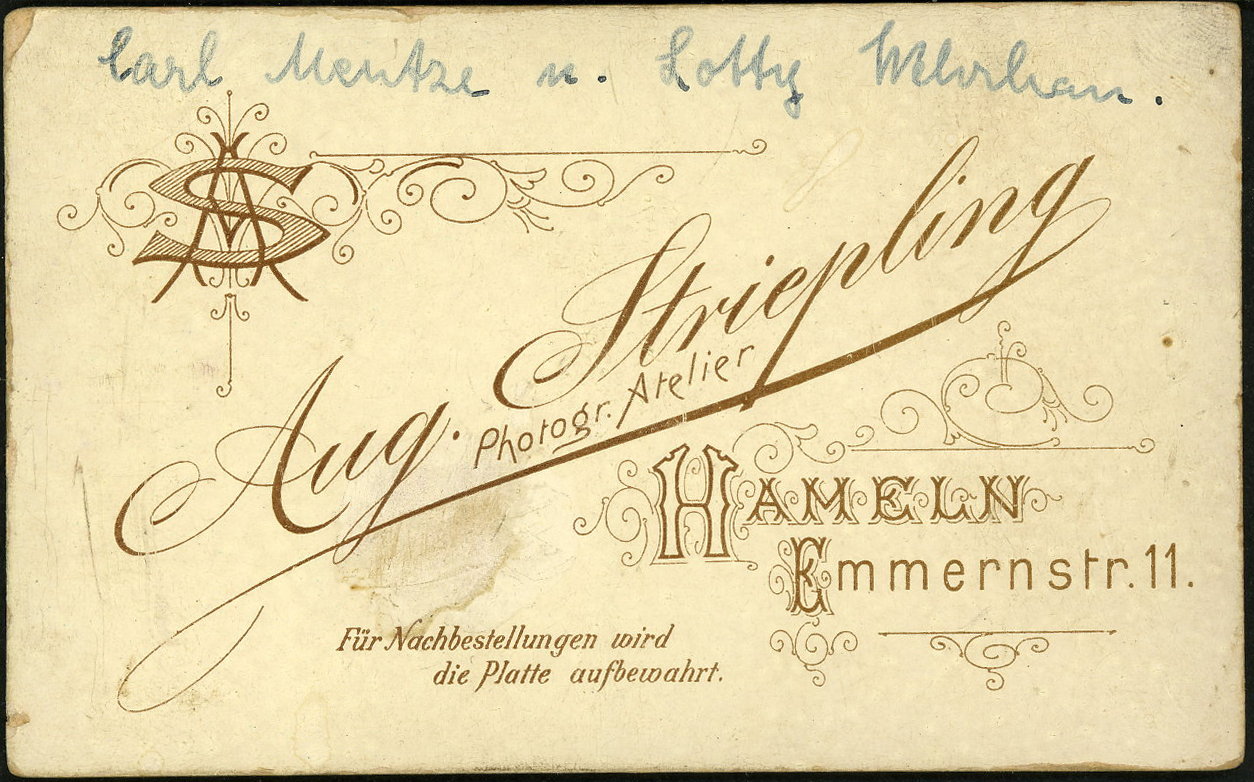 Carl Mentze u. Lotty Wehrhan.
AS
Aug. Striepling
Photogr. Atelier
HAMELN
Emmernstr. 11.
Für Nachbestellungen wird
die Platte aufbewahrt.